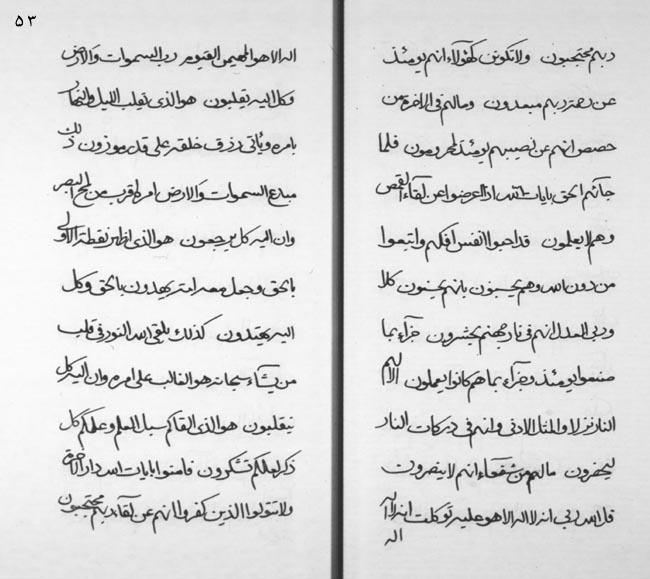 ٥٣
ربهم محتجبون ولا تكونن كهؤلاء انهم يومئذ
عن رحمة ربهم مبعدون ومالهم فى الاخرة من
حصص انهم عن نصيبهم يومئذ لمحرومون فلما
جائهم الحق بايات الله اذا اعرضوا عن لقاء القمص
وهم لا يعلمون قد احبوا انفس افكهم واتبعوا
من دون الله وهم يحسبون بانهم يحسنون كلا
وربى العدل انهم فى نار جهنم يحشرون جزاء بما
صنعوا يومئذ وجزاء بما هم كانوا يعملون الا لهم
النار نزلا والمثل الادنى وانهم فى دركات النار
ليحضرون مالهم من شفعاء انهم لا ينصرون
قل الله ربى انه لا اله الا هو عليه توكلت انه لا اله
اله الا هو المهيمن القيوم رب السموات والارض
وكل اليه يقلبون هو الذى يقلب الليل والنهار
بامره وياتى برزق خلقه على قدر موزون ذلك
مبدع السموات والارض امره اقرب من لمح البصر
وان اليه كل يرجعون هو الذى اظهر نقطة الاولى
بالحق وجعل معه امة يهدون بالحق وكل
اليه يهتدون كذلك يلقى الله النور فى قلب
من يشاء سبحانه هو الغالب على امره وان اليه كل
يقلبون هو الذى القاكم سبل العلم وعلمكم كل
ذكر لعلكم تشكرون فامنوا بايات الله دار الاخرة
ولا تتولوا الذين كفروا انهم عن لقاء ربهم محتجبون